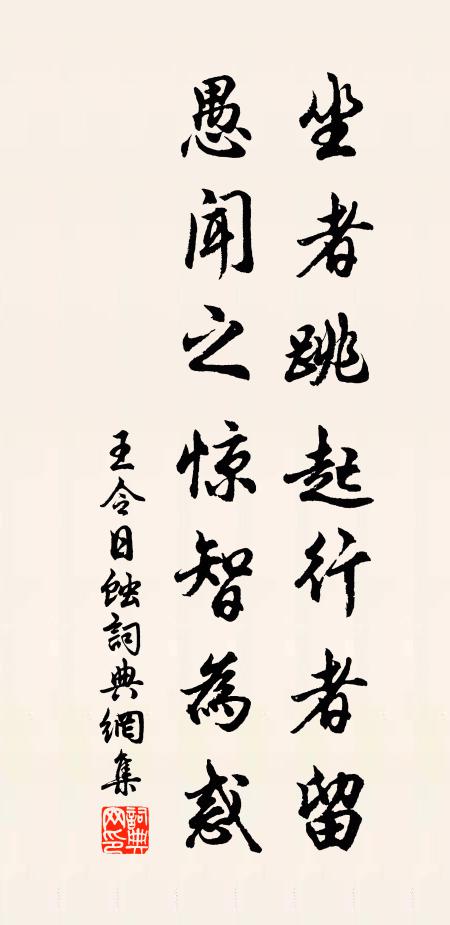 坐者跳起行者留
愚闻之惊智為惑
王令日蚀詞典網集
詞典网印